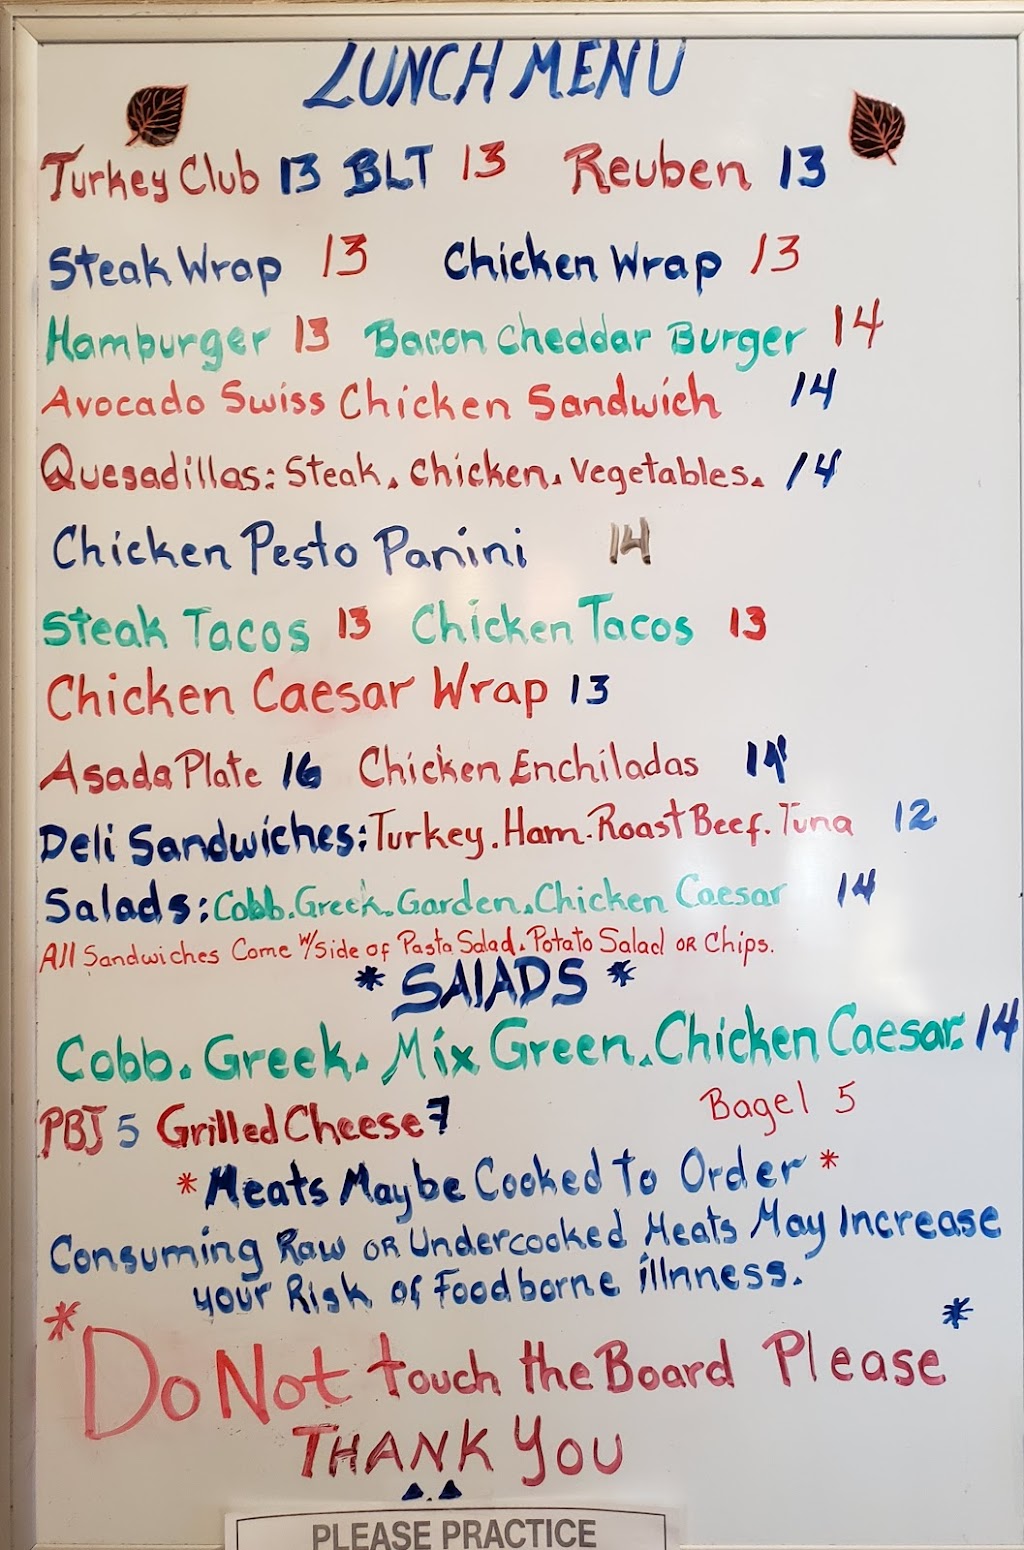 LUNCH MENU
Turkey Club 13 BLT 13 Reuben 13
Steak Wrap 13 Chicken Wrap 13
Hamburger 13 Bacon Cheddar Burger 14
Avocado Swiss Chicken Sandwich 14
Quesadillas: Steak. Chicken. Vegetables. 14
Chicken Pesto Panini 14
Steak Tacos 13 Chicken Tacos 13
Chicken Caesar Wrap 13
Asada Plate 16 Chicken Enchiladas 14
Deli Sandwiches: Turkey. Ham. Roast Beef. Tuna 12
Salads: Cobb. Greek. Garden. Chicken Caesar 14
All Sandwiches Come w/Side of Pasta Salad. Potato Salad OR Chips.
* SALADS *
Cobb. Greek. Mix Green. Chicken Caesar. 14
PBJ 5 Grilled Cheese 7 Bagel 5
* Meats Maybe Cooked to Order *
Consuming Raw OR Undercooked Meats May Increase
your Risk of Foodborne illnness.
* Do Not touch the Board Please *
THANK YOU
PLEASE PRACTICE